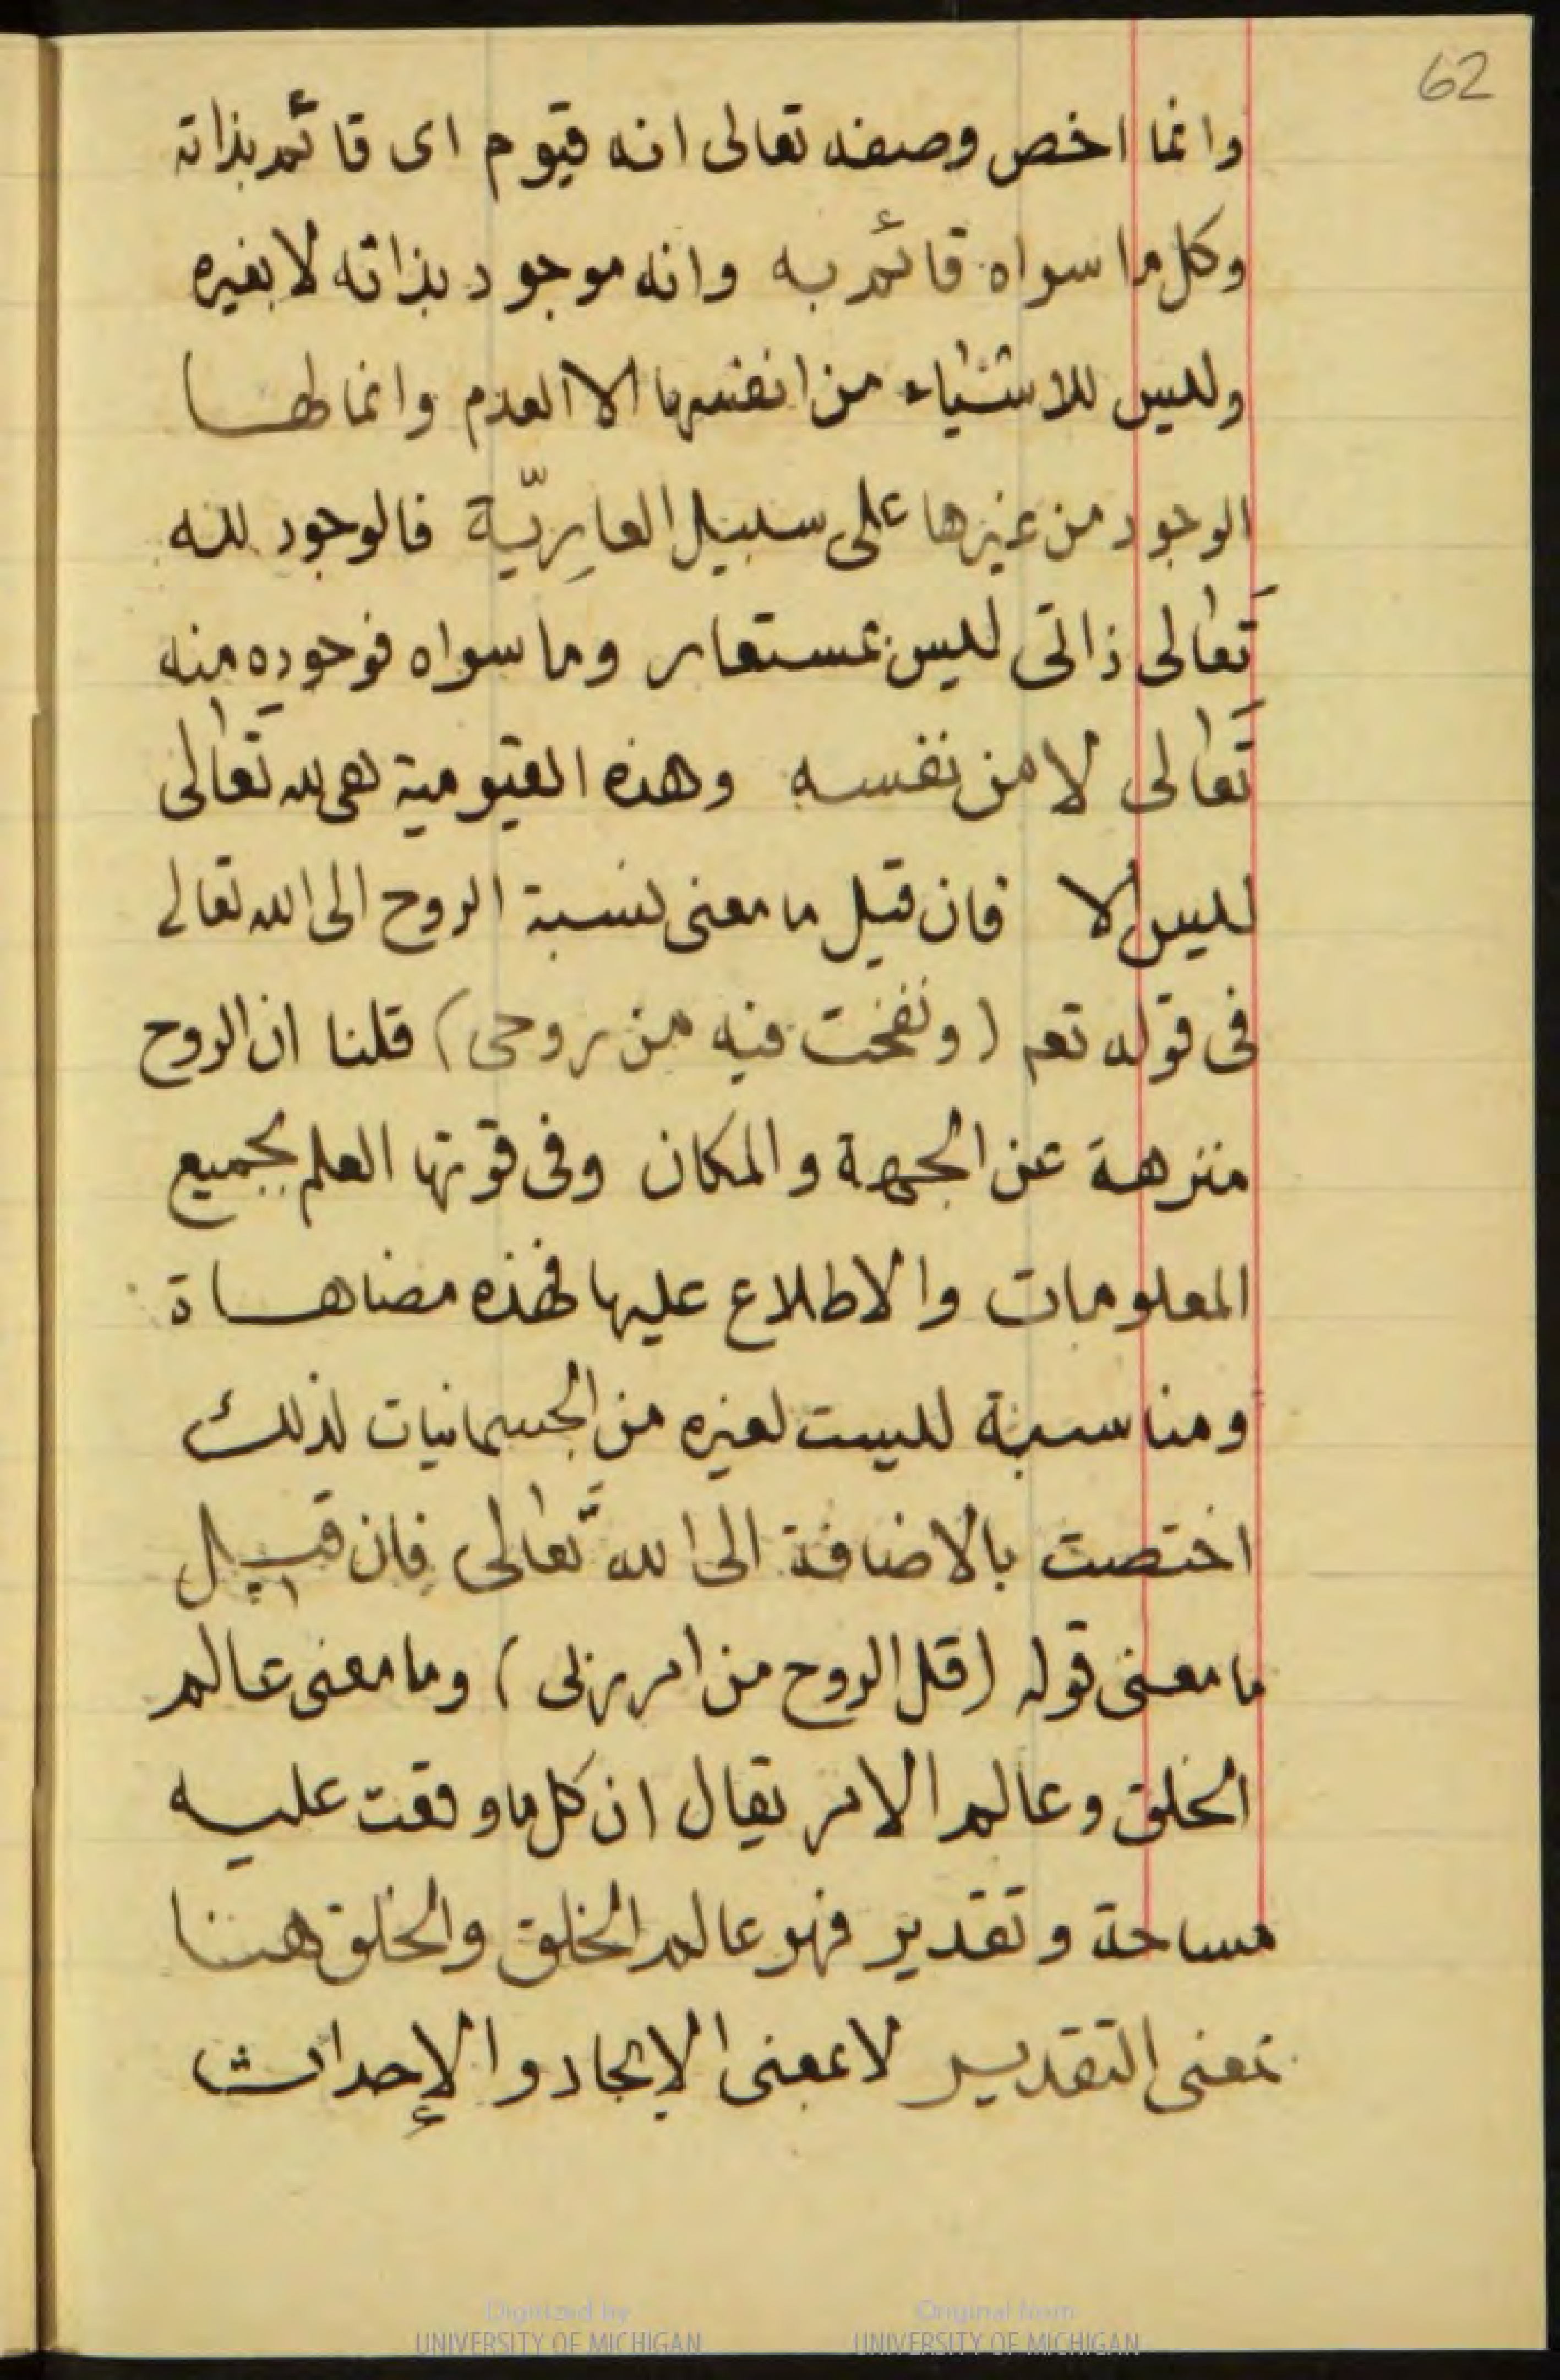 62
وانما اخص وصفه تعالى انه قيوم اى قائم بذاته
وكل ما سواه قائم به وانه موجود بذاته لا بغيره
وليس للاشياء من انفسها الا العدم وانما لها
الوجود من غيرها على سبيل العاريّة فالوجود لله
تعالى ذاتى ليس بمستعار وما سواه فوجوده منه
تعالى لا من نفسه وهذه القيومية هى لله تعالى
ليس الا فان قيل ما معنى نسبة الروح الى الله تعالى
فى قوله تعم (ونفخت فيه من روحى) قلنا ان الروح
منزهة عن الجهة والمكان وفى قوتها العلم بجميع
المعلومات والاطلاع عليها فهذه مضاهاة
ومناسبة ليست لغيره من الجسمانيات لذلك
اختصت بالاضافة الى الله تعالى فان قيل
ما معنى قوله (قل الروح من امر ربى) وما معنى عالم
الخلق وعالم الامر يقال ان كل ما وقعت عليه
مساحة وتقدير فهو عالم الخلق والخلق هنا
بمعنى التقدير لا بمعنى الإيجاد والإحداث
Digitized by
UNIVERSITY OF MICHIGAN
Original from
UNIVERSITY OF MICHIGAN